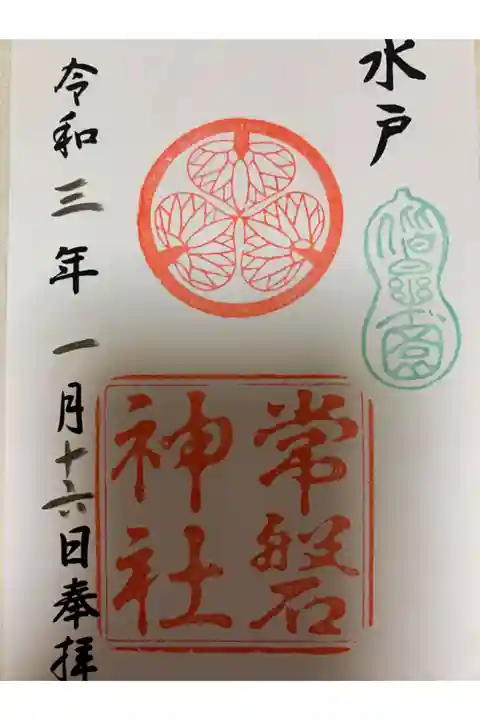 水戸
偕楽園
常磐
神社
令和三年一月十六日奉拝